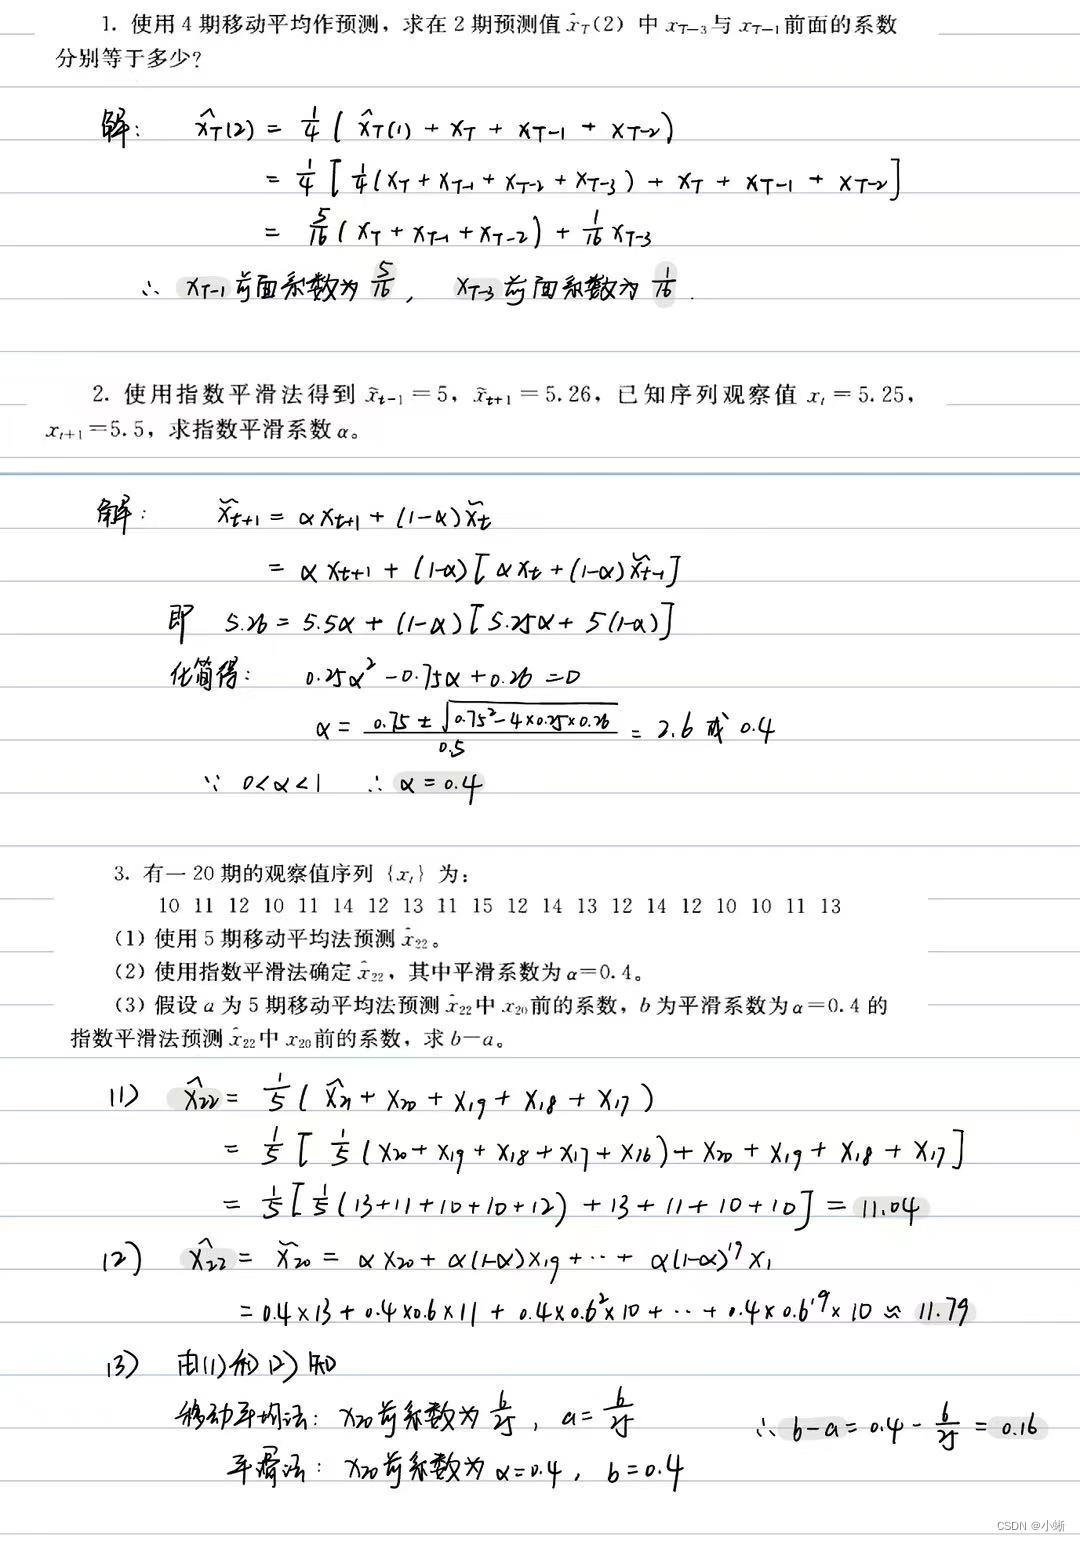 1. 使用4期移动平均作预测，求在2期预测值 x̂_T(2) 中 x_{T-3} 与 x_{T-1} 前面的系数
分别等于多少?
解: x̂_T(2) = 1/4 ( x̂_T(1) + x_T + x_{T-1} + x_{T-2})
= 1/4 [ 1/4(x_T + x_{T-1} + x_{T-2} + x_{T-3}) + x_T + x_{T-1} + x_{T-2}]
= 5/16 ( x_T + x_{T-1} + x_{T-2}) + 1/16 x_{T-3}
∴ x_{T-1} 前面系数为 5/16 , x_{T-3} 前面系数为 1/16 .
2. 使用指数平滑法得到 x̃_{t-1} = 5，x̃_{t+1} = 5.26，已知序列观察值 x_t = 5.25，
x_{t+1} = 5.5，求指数平滑系数 α。
解: x̃_{t+1} = αx_{t+1} + (1-α)x̃_t
= αx_{t+1} + (1-α)[αx_t + (1-α)x̃_{t-1}]
即 5.26 = 5.5α + (1-α)[5.25α + 5(1-α)]
化简得: 0.25α² - 0.75α + 0.26 = 0
α = (0.75 ± √(0.75² - 4×0.25×0.26))/0.5 = 2.6 或 0.4
∵ 0<α<1 ∴ α = 0.4
3. 有一20期的观察值序列 {x_t} 为:
10 11 12 10 11 14 12 13 11 15 12 14 13 12 14 12 10 10 11 13
(1) 使用5期移动平均法预测 x̂_22。
(2) 使用指数平滑法确定 x̂_22，其中平滑系数为 α=0.4。
(3) 假设 a 为5期移动平均法预测 x̂_22 中 x_20 前的系数，b 为平滑系数为 α=0.4 的
指数平滑法预测 x̂_22 中 x_20 前的系数，求 b-a。
(1) x̂_22 = 1/5 ( x̂_21 + x_20 + x_19 + x_18 + x_17 )
= 1/5 [ 1/5 (x_20 + x_19 + x_18 + x_17 + x_16) + x_20 + x_19 + x_18 + x_17]
= 1/5 [1/5 (13+11+10+10+12) + 13+11+10+10] = 11.04
(2) x̂_22 = x̃_20 = αx_20 + α(1-α)x_19 + ⋯ + α(1-α)^19 x_1
= 0.4×13 + 0.4×0.6×11 + 0.4×0.6²×10 + ⋯ + 0.4×0.6^19×10 ≈ 11.79
(3) 由(1)和(2)知
移动平均法: x_20前系数为 6/25 , a = 6/25 ∴ b-a = 0.4 - 6/25 = 0.16
平滑法: x_20前系数为 α=0.4 , b=0.4
CSDN @小蜥